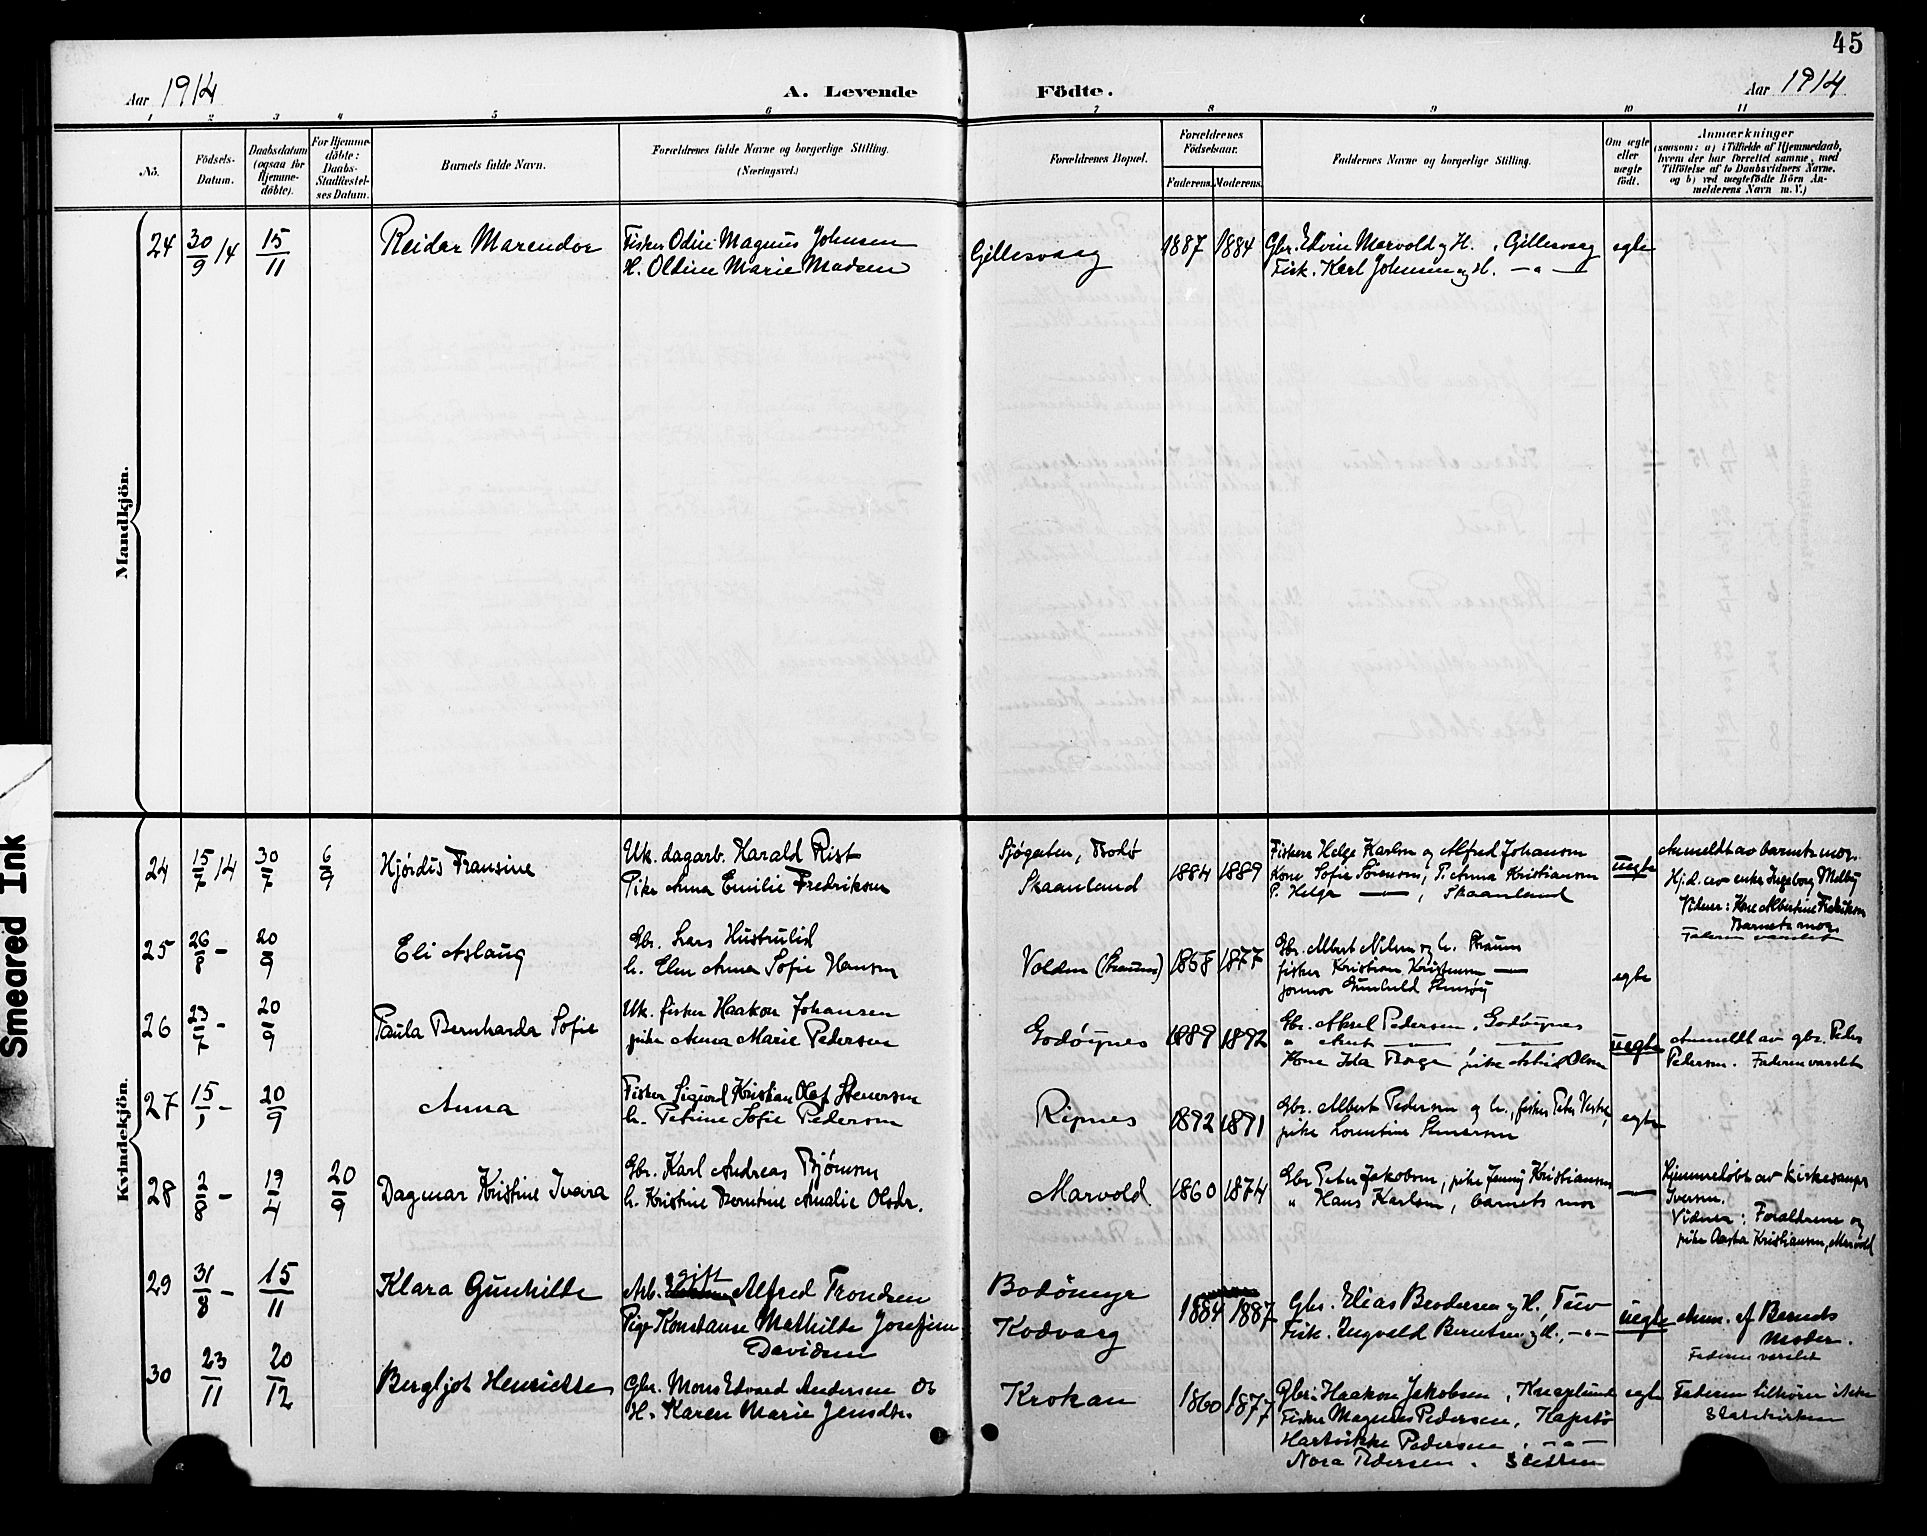 45
Aar 1914
A. Levende
Födte.
Aar 1914
1 2 3 4 5 6 7 8 9 10 11
No.
Födsels-
Datum.
Daabsdatum
(ogsaa for
Hjemme-
döbte).
For Hjemme-
döbte:
Daabs-
Stadfæstel-
ses Datum.
Barnets fulde Navn.
Forældrenes fulde Navne og borgerlige Stilling.
(Næringsvei.)
Forældrenes Bopæl.
Forældrenes
Födselsaar.
Faderens. Moderens.
Faddernes Navne og borgerlige Stilling.
Om ægte
eller
uægte
født.
Anmærkninger
(saasom: a) i Tilfælde af Hjemmedaab,
hvem der har forrettet samme, med
Tilföielse af to Daabsvidners Navne,
og b) ved uægtefödte Börn An-
melderens Navn m. V.)
Mandkjön.
24 30/9 14 15/11 Reidar Marendor
Fisker Odin Magnus Johnsen
H. Oldine Marie Madsen
Gillesvaag 1887 1884
Gbr. Edvin Marvold og H., Gillesvaag
Fisk. Karl Johnsen og H. — " —
egte
Kvindekjön.
24 15/7 14 30/7 6/9 Hjördis Fransine
Uk. dagarb. Harald Rist
Pike Anna Emilie Fredriksen
Sjøgaten, Bodø
Skaanland
1884 1889
Fiskere Helge Karlsen og Alfred Johansen
Kone Sofie Sörensen, P. Anna Kristiansen
P. Helga — , Skaanland
uegte
Anmeldt av barnets mor.
Hj.d. av enke Ingeborg Melby
Vidner: Kone Albertine Fredriksen
Barnets mor
Faderen varslet
25 26/8 - 20/9 Eli Aslaug
Gbr. Lars Hustrulid
h. Elen Anna Sofie Hansen
Volden (Straum) 1868 1877
Gbr. Albert Nilsen og h. Straum
fisker Kristian Kristensen —
jonmor Gunhild
egte
26 23/7 - 20/9 Paula Bernharda Sofie
Uk. fisker Haakon Johansen
pike Anna Marie Pedersen
Godöynes 1889 1892
Gbr. Aksel Pedersen, Godöynes
" — —
Kone Ida , pike Olsen
uegte
Anmeldt av gbr. Peder
Pedersen. Faderen varslet
27 15/ - 20/9 Anna
Fisker Sigurd Kristian Olaf Stenersen
h. Petrine Sofie Pedersen
Ripnes 1892 1891
Gbr. Albert Pedersen og h., fisker Peter
pike Lorentine Stenersen
egte
28 2/8 - 19/4 20/9 Dagmar Kristine Ivara
Gbr. Karl Andreas Björnsen
h. Kristine Berntine Amalie Olsdr.
Marvold 1860 1874
Gbr Peter Jakobsen, pike Jenny Kristiansen
" Hans Karlsen, barnets mor
—
Hjemmedöbt av kirkesanger
Iversen.
Vidner: Foraldrene og
pike Aasta Kristiansen, Marvold
29 31/8 - 15/11 Klara Gunhilde
gift
Arb. Alfred Trondsen
Pige Konstanse Mathilde Josefine
Davidsen
Bodömyr
Kodvaag
1884 1887
Gbr. Elias Brodersen og H., Tuv
Fisk. Ingvald Berntsen og H., — " —
uegte
Anm. af Barnets
Moder.
Faderen varslet
30 23/11 20/12 Bergljot Henriette
Gbr. Mons Edvard Andersen og
H. Karen Marie Jensdtr.
Krokan 1860 1877
Gbr. Haakon Jakobsen, Knaplund
Fisker Magnus Pedersen, Hapstö
Hartvikke Pedersen, — " —
Nora Pedersen. Sletten
egte
Faderen tilhörer ikke
Statskirken
Smeared Ink